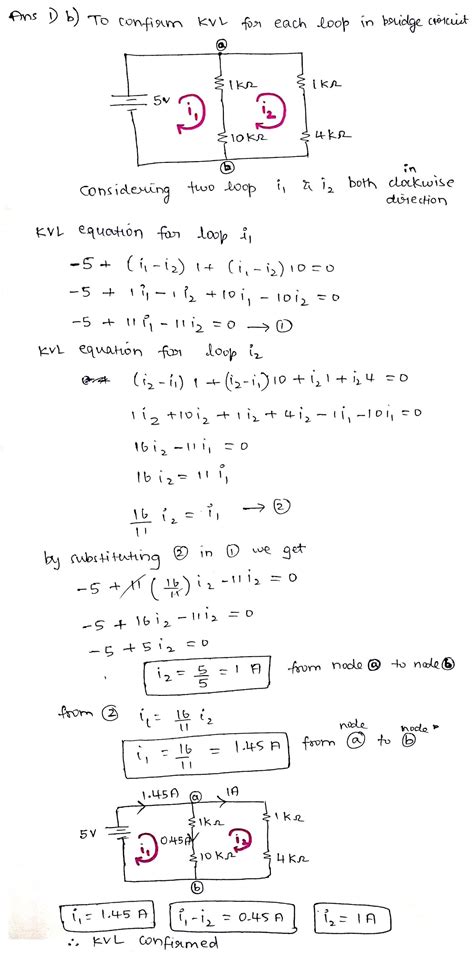 Ans 1) b) To confirm KVL for each loop in bridge circuit
a
5v
1KΩ
1KΩ
i₁
i₂
10KΩ
4KΩ
b
considering two loop i₁ & i₂ both in clockwise direction
KVL equation for loop i₁
-5 + (i₁-i₂) 1 + (i₁-i₂) 10 = 0
-5 + 1i₁ - 1i₂ + 10i₁ - 10i₂ = 0
-5 + 11i₁ - 11i₂ = 0 → ①
KVL equation for loop i₂
(i₂-i₁) 1 + (i₂-i₁) 10 + i₂1 + i₂4 = 0
1i₂ + 10i₂ + 1i₂ + 4i₂ - 1i₁ - 10i₁ = 0
16i₂ - 11i₁ = 0
16i₂ = 11i₁
16/11 i₂ = i₁ → ②
by substituting ② in ① we get
-5 + 11 (16/11) i₂ - 11i₂ = 0
-5 + 16i₂ - 11i₂ = 0
-5 + 5i₂ = 0
i₂ = 5/5 = 1 A from node ⓐ to node ⓑ
from ② i₁ = 16/11 i₂
i₁ = 16/11 = 1.45 A from node ⓐ to node ⓑ
1.45A a 1A
1KΩ
1KΩ
5V
i₁
0.45A
i₂
10KΩ
4KΩ
b
i₁ = 1.45 A i₁-i₂ = 0.45 A i₂ = 1A
∴ KVL confirmed